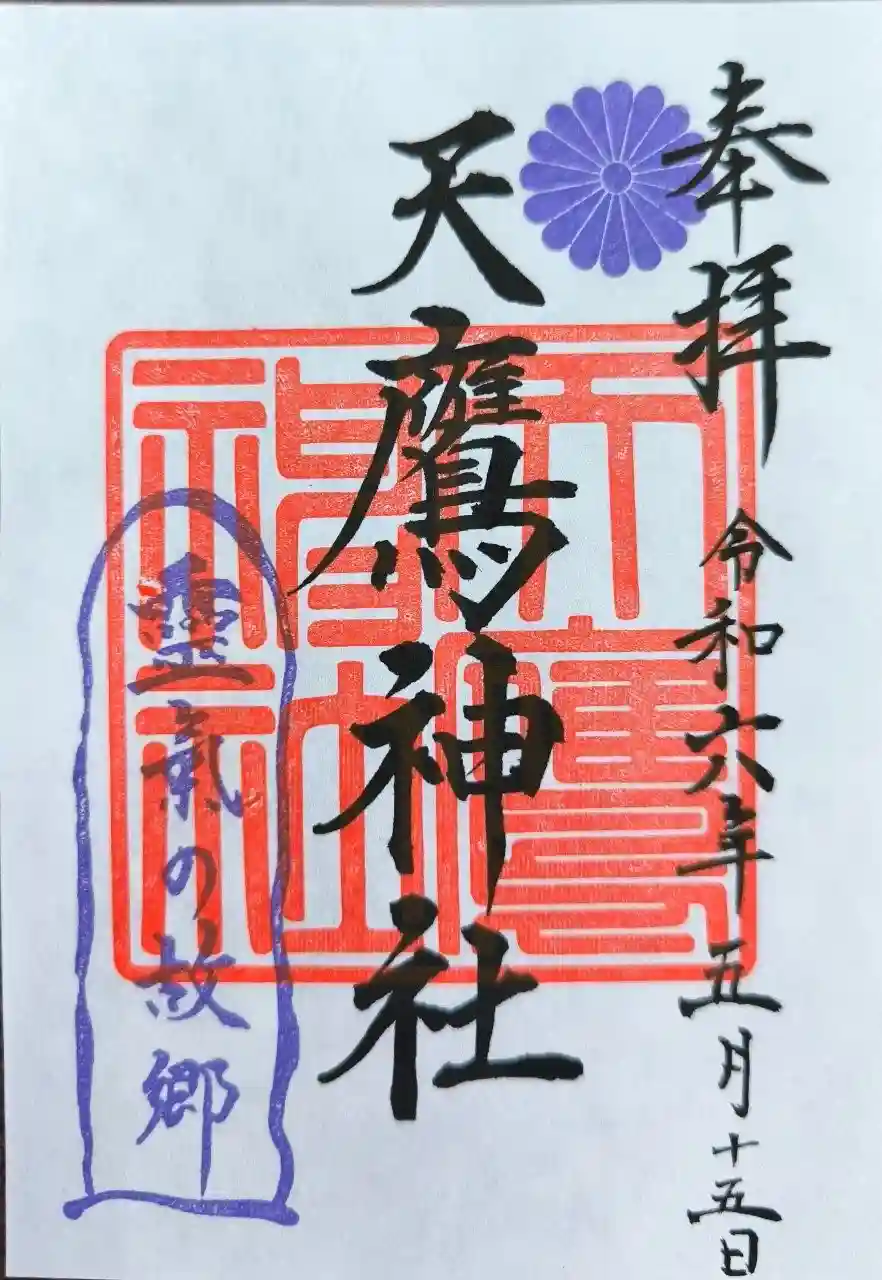 奉拝
令和六年五月十五日
天鷹神社
天鷹神社
靈氣の故郷